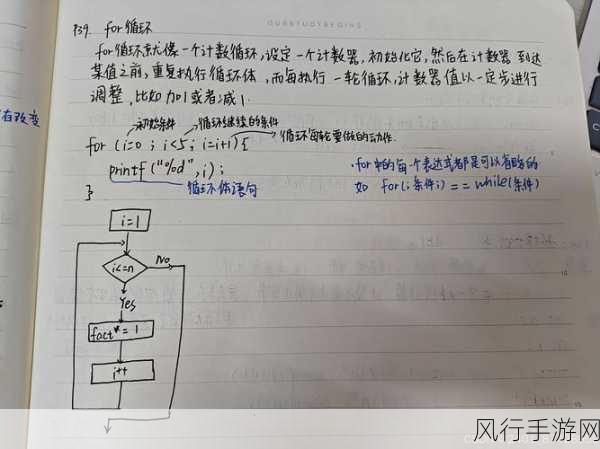 OUR STUDY BEGINS
P39. for循环
for循环就像一个计数循环,设定一个计数器,初始化它,然后在计数器到达
某值之前,重复执行循环体,而每执行一轮循环,计数器值以一定步进行
调整,比如加1或者减1.
在改变
初始条件 循环继续的条件
循环每轮要做的动作.
for (i=0 ; i<5; i=i+1){
printf ("%d",i);
循环体语句
}
·for中的每一个表达式都是可以省略的
如 for(;条件;) == while(条件)
i=1
i<=n
No
Yes
fact*=1
i++
风行手游网